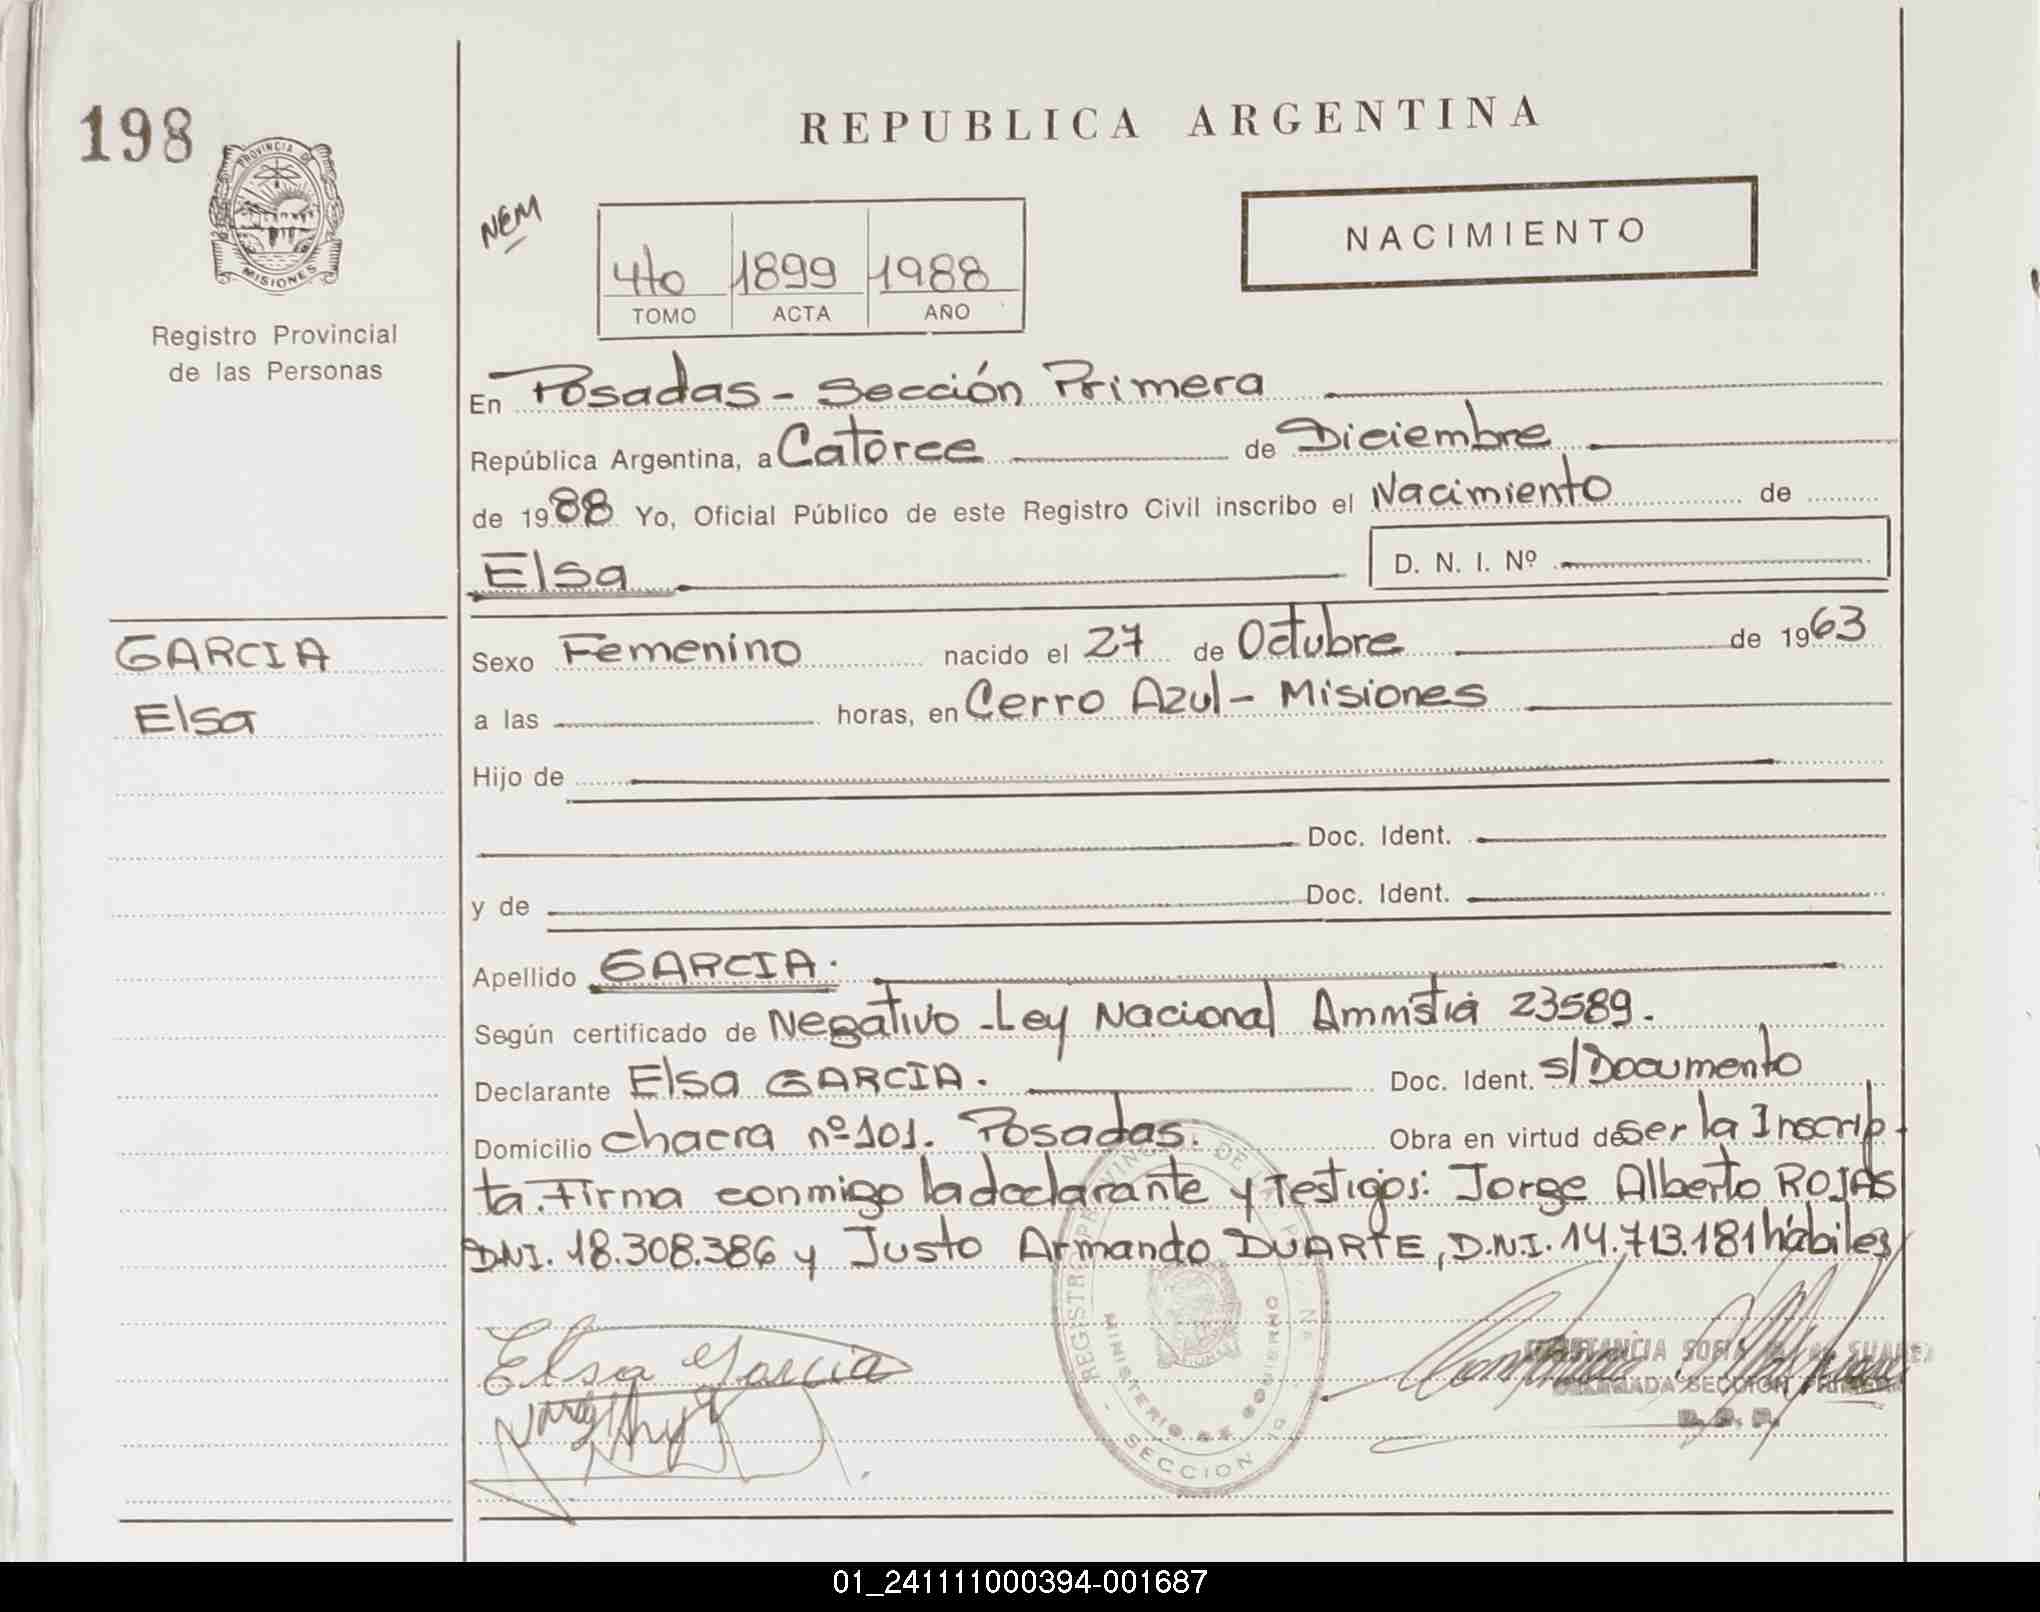 198
PROVINCIA DE
MISIONES
Registro Provincial
de las Personas
REPUBLICA ARGENTINA
NEM
4to 1899 1988
TOMO ACTA AÑO
NACIMIENTO
En Posadas - Sección Primera
República Argentina, a Catorce de Diciembre
de 1988 Yo, Oficial Público de este Registro Civil inscribo el Nacimiento de
Elsa D. N. I. Nº
GARCIA
Elsa
Sexo Femenino nacido el 27 de Octubre de 1963
a las horas, en Cerro Azul - Misiones
Hijo de
Doc. Ident.
y de Doc. Ident.
Apellido GARCIA.
Según certificado de Negativo - Ley Nacional Amnistia 23589.
Declarante Elsa GARCIA. Doc. Ident. s/Documento
Domicilio chacra nº 101. Posadas. Obra en virtud de ser la Inscrip-
ta. Firma conmigo la declarante y Testigos: Jorge Alberto ROJAS
D.N.I. 18.308.386 y Justo Armando DUARTE, D.N.I. 14.713.181 hábiles
Elsa Garcia
REGISTRO PROVINCIAL DE LAS PERSONAS
MINISTERIO DE GOBIERNO
SECCION 1º
CONSTANCIA SOFIA DE SUAREZ
DELEGADA SECCION PRIMERA
01_241111000394-001687